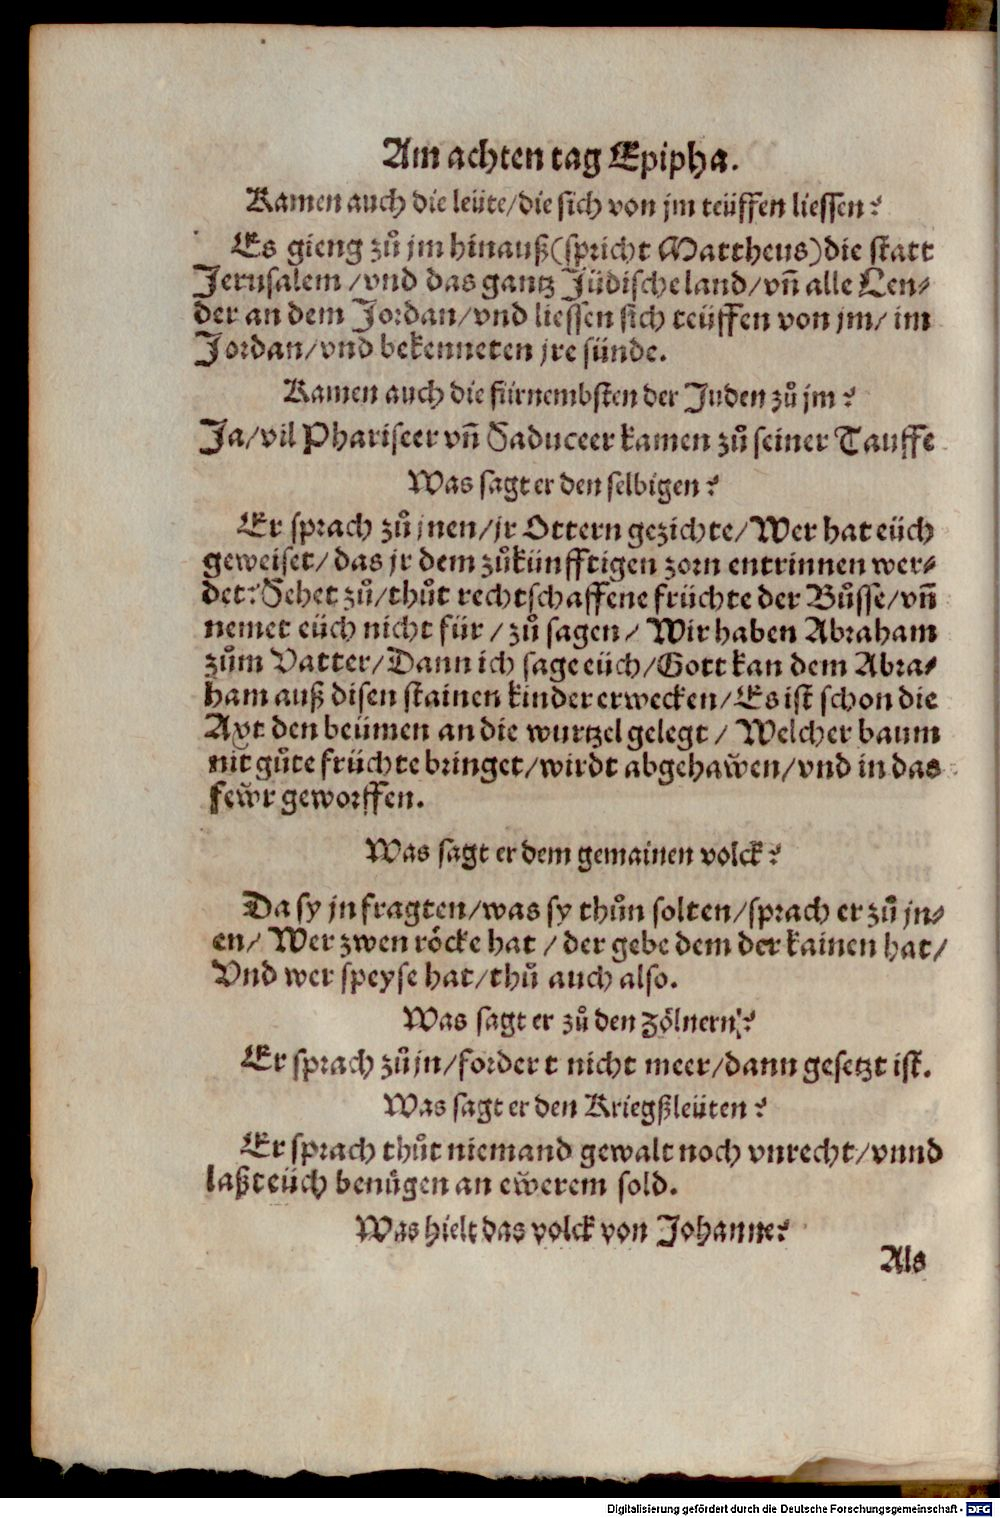 Am achten tag Epipha.
Kamen auch die leüte/die sich von jm teüffen liessen?
Es gieng zuͦ jm hinauß(spricht Mattheus)die statt
Jerusalem /vnd das gantz Jüdische land/vn̄ alle Len-
der an dem Jordan/vnd liessen sich teüffen von jm/ im
Jordan/vnd bekenneten jre sünde.
Kamen auch die fürnembsten der Juden zuͦ jm?
Ja/vil Phariseer vn̄ Saduceer kamen zuͦ seiner Tauffe
Was sagt er den selbigen?
Er sprach zuͦ jnen/jr Ottern gezichte/Wer hat eüch
geweiset/das jr dem zuͦkünfftigen zorn entrinnen wer-
det?Sehet zuͦ/thuͦt rechtschaffene früchte der Buͦsse/vn̄
nemet eüch nicht für /zuͦ sagen/ Wir haben Abraham
zuͦm Vatter/Dann ich sage eüch/Gott kan dem Abra-
ham auß disen stainen kinder erwecken/Es ist schon die
Axt den beümen an die wurtzel gelegt / Welcher baum
nit guͦte früchte bringet/wirdt abgehaw̌en/vnd in das
few̌r geworffen.
Was sagt er dem gemainen volck?
Da sy jn fragten/was sy thuͦn solten/sprach er zuͦ jn-
en/ Wer zwen roͤcke hat /der gebe dem der kainen hat/
Vnd wer speyse hat/thuͦ auch also.
Was sagt er zuͦ den Zoͤlnern?
Er sprach zuͦ jn/fordert nicht meer/dann gesetzt ist.
Was sagt er den Kriegßleüten?
Er sprach thuͦt niemand gewalt noch vnrecht/vnnd
laßt eüch benuͤgen an ew̌erem sold.
Was hielt das volck von Johanne?
Als
Digitalisierung gefördert durch die Deutsche Forschungsgemeinschaft - DFG